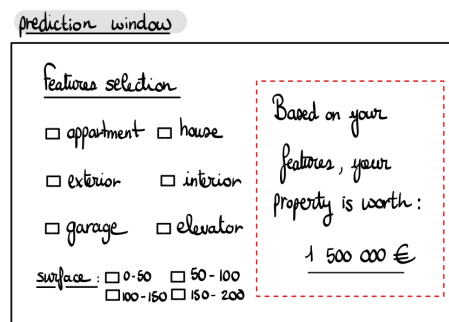 prediction window
Features selection
appartment house
exterior interior
garage elevator
surface : 0-50 50-100
100-150 150-200
Based on your
features, your
property is worth :
1 500 000 €